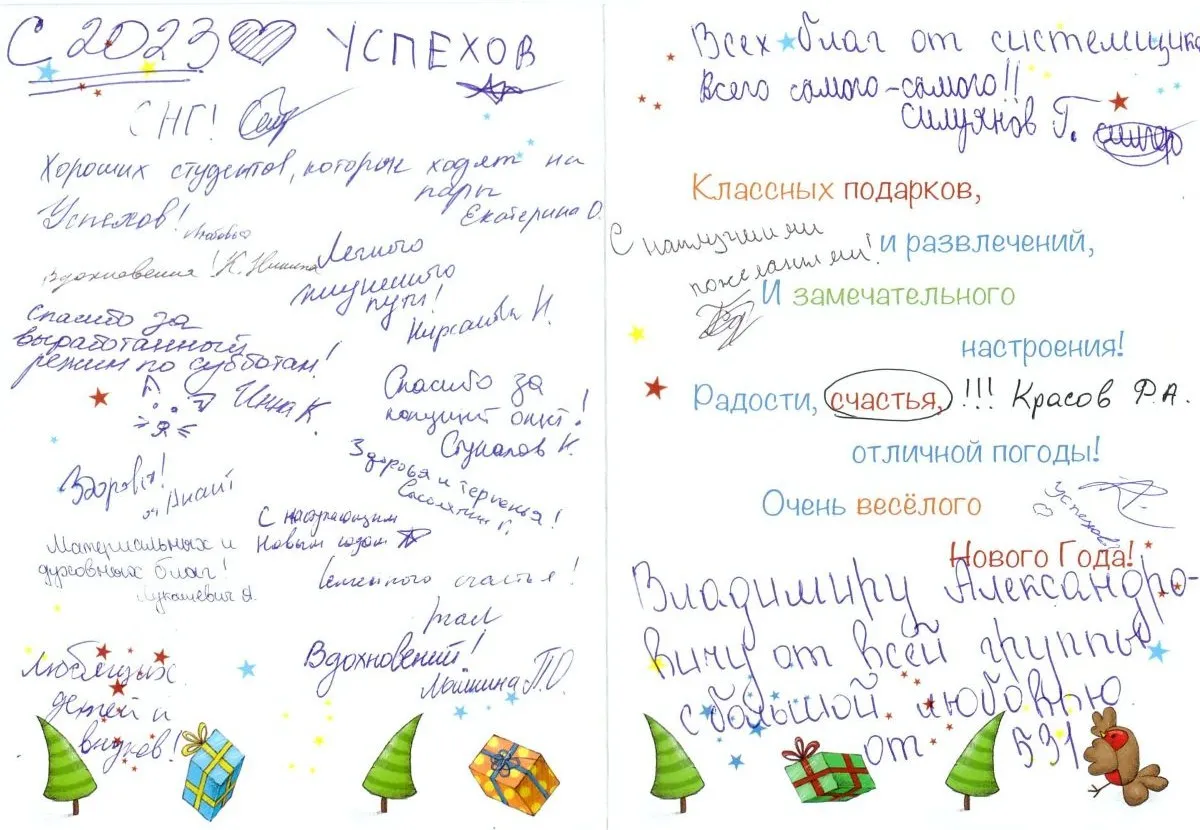 С 2023 УСПЕХОВ
СНГ!
Хороших студентов, которые ходят на
пары
Екатерина О.
Успехов!
Любовь
Вдохновения! К. Никита
Легкого
жизненного
пути!
Кирсанова И.
Спасибо за
выработанный
режим по субботам!
Инна К.
Я
Спасибо за
концинт опыт!
Стукалов К.
Здоровья!
Здоровья и терпенья!
С наступающим
Новым годом
Материальных и
духовных благ!
Лукашевич Я.
Семейного счастья!
Вдохновений!
Мошкина П.О.
Любящих
детей и
внуков!
Всех благ от системщика
Всего самого-самого!!
Силуянов Г.
Классных подарков,
С наилучшими
пожеланиями!
и развлечений,
И замечательного
настроения!
Радости, счастья, !!! Красов Р.А.
отличной погоды!
Очень весёлого
Успехов
Нового Года!
Владимиру Александро-
вичу от всей группы
с большой любовью
от 531